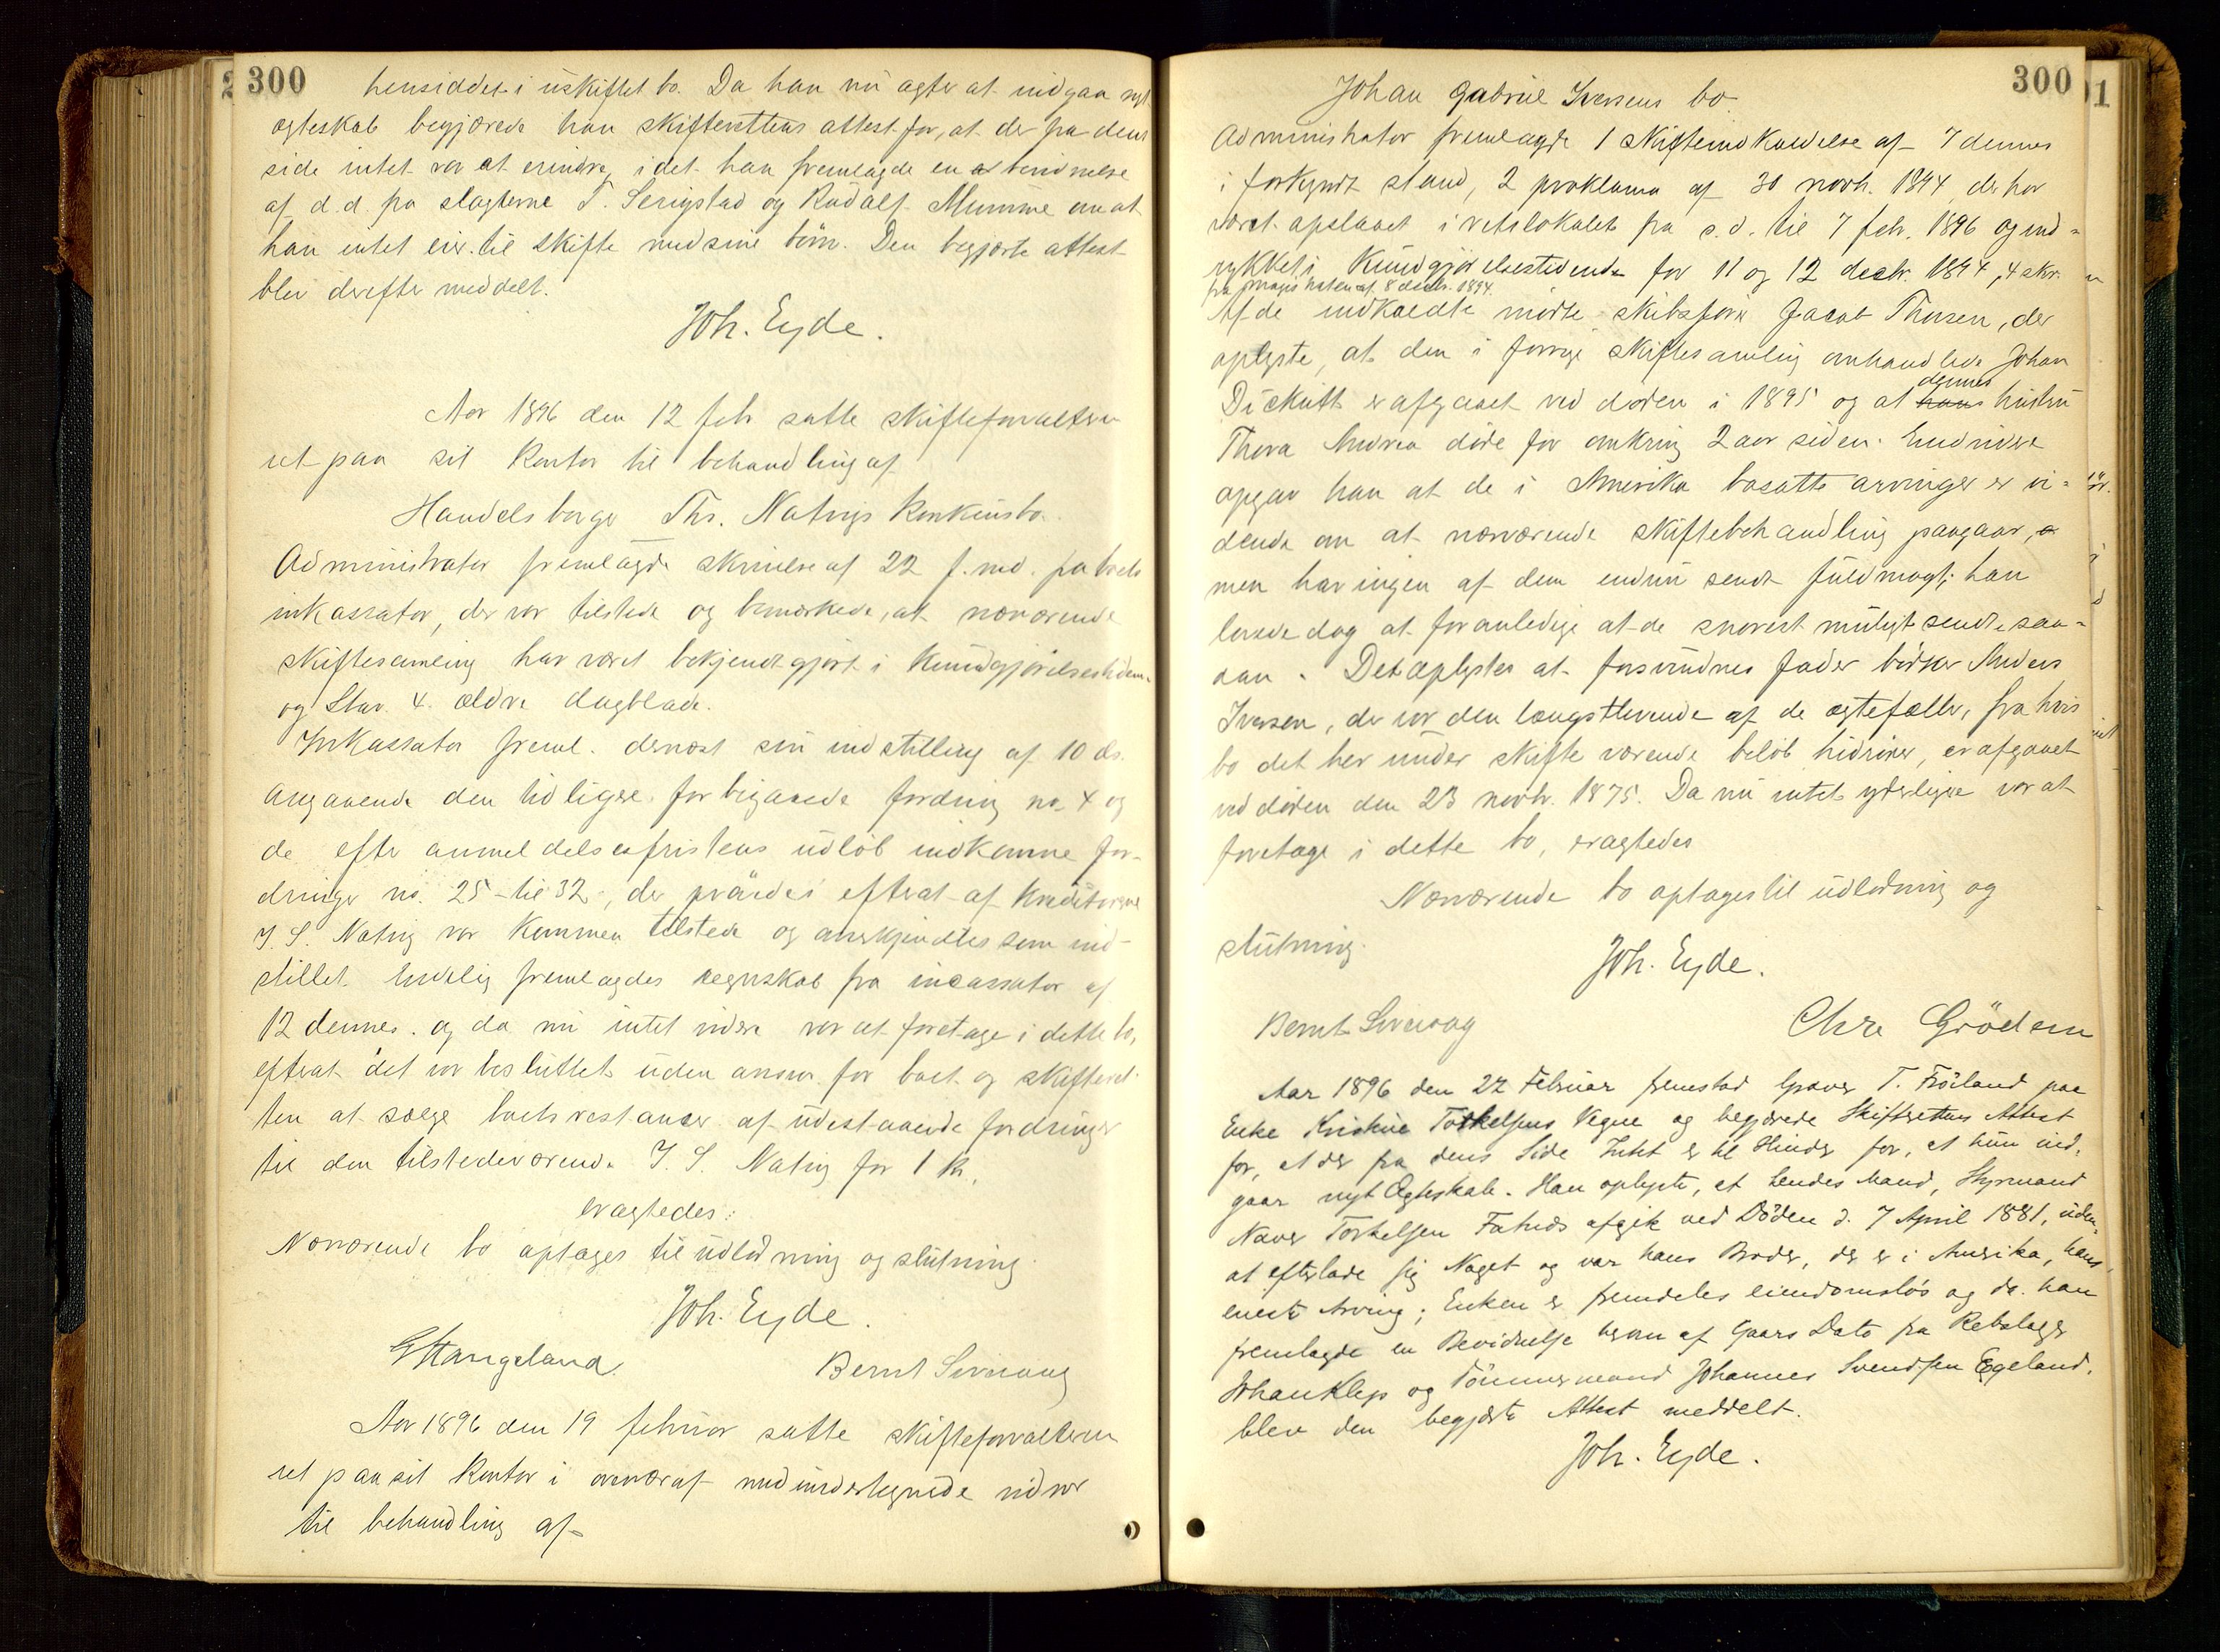 300
hensiddet i uskiftet bo. Da han nu agter at indgaa nyt
ægteskab begjærede han skifterettens attest for, at der fra dens
side intet var at erindre, idet han fremlagde en bevidnelse
af d.d. fra slagterne T. Serigstad og Rudolf Mumme om at
han intet eier til skifte med sine børn. Den begjærte attest
blev derefter meddelt.
Joh. Eyde.
Aar 1896 den 12 feb satte skifteforvalteren
ret paa sit kontor til behandling af
Handelsborger Ths. Natvigs konkursbo.
Administrator fremlagde skrivelse af 22 f. md. fra boets
inkassator, der var tilstede og bemærkede, at nærværende
skiftesamling har været bekjendtgjort i Kundgjørelsestidende
og Stav. 4. ældre dagblade.
Inkassator freml. dernæst sin indstilling af 10 ds.
angaaende den tidligere forbigaaede fordring no. 4 og
de efter anmeldelsesfristens udløb indkomne for-
dringer no. 25 til 32, der prøvedes efterat af kreditorerne
J. S. Natvig var kommen tilstede og anerkjendtes som ind-
stillet. Endelig fremlagdes regnskab fra incassator af
12 dennes. og da nu intet videre var at foretage i dette bo,
efterat det var besluttet uden ansvar for boet og skifteret-
ten at sælge boets restancer af udestaaende fordringer
til den tilstedeværende J. S. Natvig for 1 kr.,
eragtedes:
Nærværende bo optages til udlodning og slutning.
Joh. Eyde.
E Stangeland. Bernt Sivesaag
Aar 1896 den 19 februar satte skifteforvalteren
ret paa sit kontor i overvær af medundertegnede vidner
til behandling af
300
Johan Gabriel Iversens bo
Administrator fremlagde 1 skifteindkaldelse af 7 dennes
i forkyndt stand, 2 proklama af 30 novb. 1894, der har
været opslaaet i retslokalet fra s.d. til 7 feb. 1896 og ind-
rykket i Kundgjørelsestidende for 11 og 12 decbr. 1894, 4 skr.
fra magistraten af 8 decbr. 1894.
Af de indkaldte mødte skibsfører Jacob Thorsen, der
oplyste, at den i forrige skiftesamling omhandlede Johan
dennes
er afgaaet ved døden i 1895 og at hans hustru
Thora Andrea døde for omkring 2 aar siden. Endvidere
opgav han at de i Amerika bosatte arvinger er vi-
dende om at nærværende skiftebehandling paagaar,
men har ingen af dem endnu sendt fuldmagt; han
lovede dog at foranledige at de snarest muligt sendte saa-
dan. Det oplystes at forsvundnes fader bødker Anders
Iversen, der var den længstlevende af de ægtefæller, fra hvis
bo det her under skifte værende beløb hidrører, er afgaaet
ved døden den 23 novbr. 1875. Da nu intet yderligere var at
foretage i dette bo, eragtedes
Nærværende bo optages til udlodning og
slutning.
Joh. Eyde.
Bernt Sivesaag Chr. Grödem
Aar 1896 den 22 Februar fremstod Graver T. Fröiland paa
Enke Kristine Torkelsens Vegne og begjærede Skifterettens Attest
for, at der fra dens Side Intet er til Hinder for, at hun ind-
gaar nyt Ægteskab. Han oplyste, at hendes Mand, Styrmand
Torkelsen afgik ved Döden d. 7 April 1881, uden
at efterlade sig Noget og var hans Broder, der er i Amerika, hans
eneste Arving; Enken er fremdeles eiendomslös og da han
fremlagde en Bevidnelse herom af Gaars Dato fra Rebslager
Johan Klep og Tömmermand Johannes Svendsen Egeland,
blev den begjærte Attest meddelt.
Joh. Eyde.